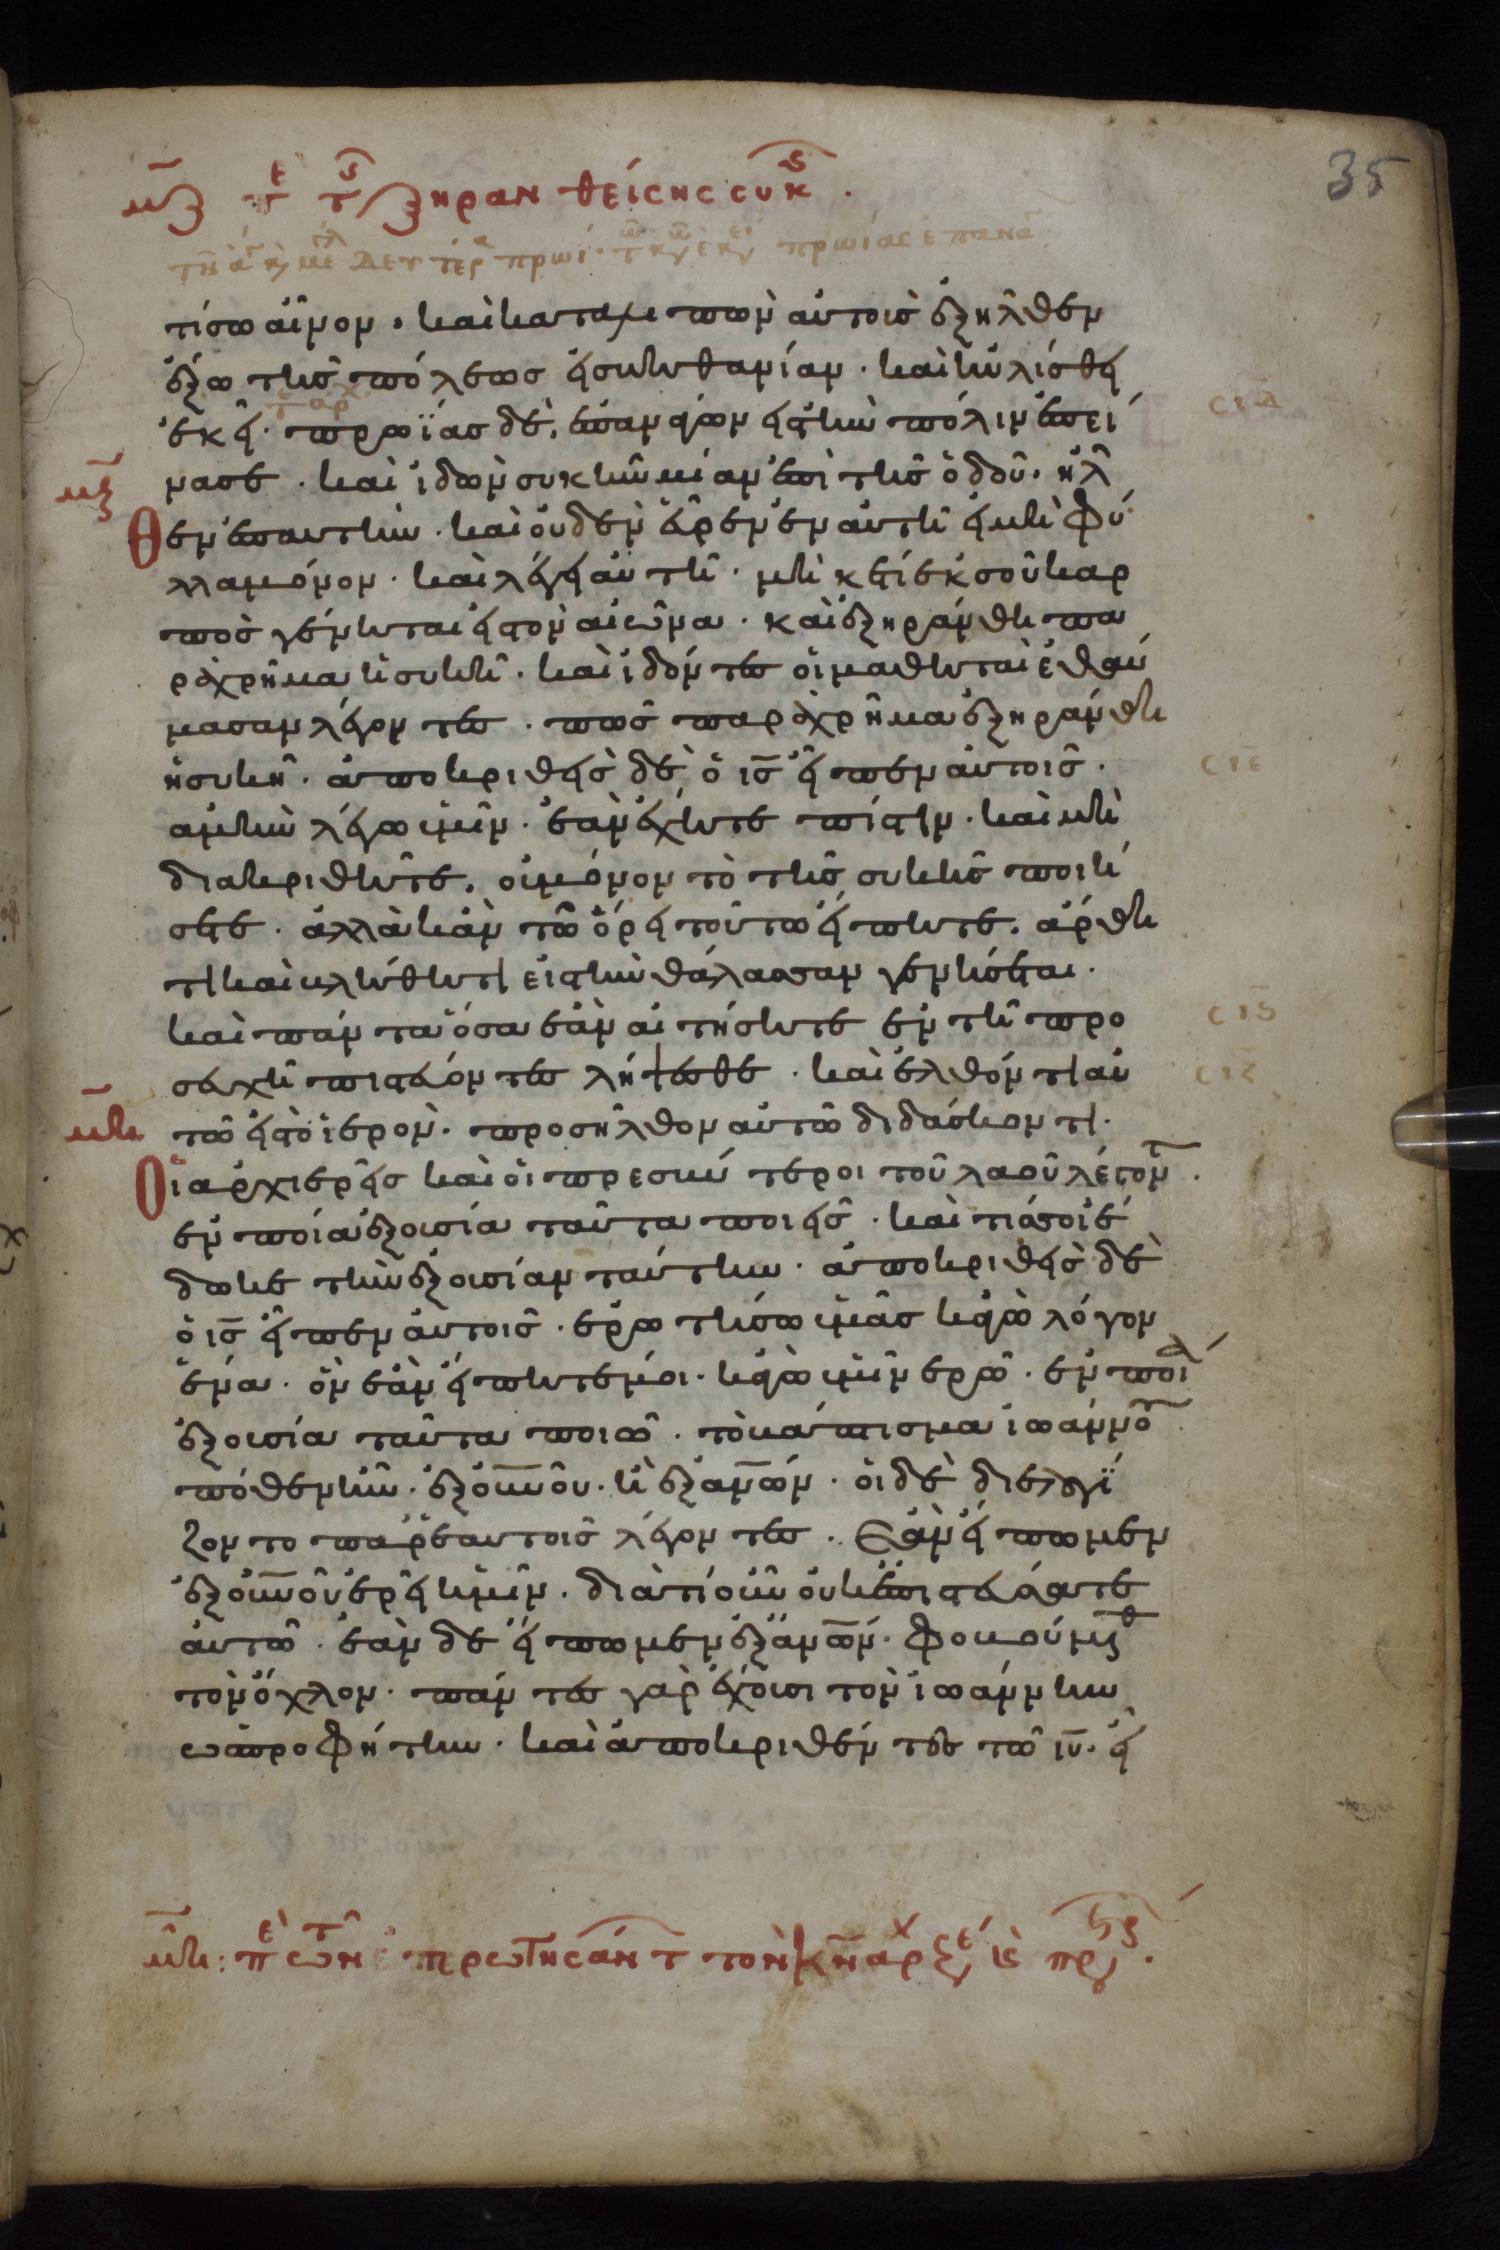 35
μζ π τ ξηρανθείσης συκ ·
τη ἁγ κ με Δευτέρ πρωί· τ κ ἐκ πρωίας ἐπανα
τίσω αἶνον · καὶ καταλιπὼν αὐτοὺσ ἐξῆλθεν
ἔξω τῆσ πόλεωσ εἰσ βηθανίαν · καὶ ηὐλίσθη
ἐκεῖ · πρωΐασ δὲ, ἐπανάγων εἰσ τὴν πόλιν ἐπεί
νασε · καὶ ἰδὼν συκῆν μίαν ἐπὶ τῆσ ὁδοῦ · ἦλ
μζ
θεν ἐπ αυτὴν · καὶ οὐδὲν εὗρεν ἐν αὐτῆ εἰ μὴ φύ
λλα μόνον · καὶ λέγει αὐτῆ · μηκέτι ἐκ σοῦ καρ
ποσ γένηται εἰσ τὸν αἰῶνα · καὶ ἐξηράνθη πα
ραχρῆμα ἡ συκῆ · καὶ ἰδόντεσ οἱ μαθηταὶ ἐθαύ
μασαν λέγοντεσ · πῶσ παραχρῆμα ἐξηράνθη
ἡ συκῆ · ἀποκριθεὶσ δὲ ὁ ισ εἶπεν αὐτοῖσ ·
αμὴν λέγω ὑμῖν · ἐὰν ἔχητε πίστιν · καὶ μὴ
διακριθῆτε, οὐ μόνον τὸ τῆσ συκῆσ ποιή
σετε · ἀλλὰ κἂν τῶ ὄρει τούτω εἴπητε, ἄρθη
τι καὶ βλήθητι εἰσ τὴν θάλασσαν γενήσεται ·
καὶ πάντα ὅσα ἐὰν αἰτήσητε ἐν τῆ προ
σευχῆ πιστεύοντεσ λήψεσθε · καὶ ἐλθόντι αὐ
τῶ εἰσ τὸ ἱερὸν · προσῆλθον αὐτῶ διδάσκοντι ·
μη
Οἱ ἀρχιερεῖσ καὶ οἱ πρεσβύτεροι τοῦ λαοῦ λέγοντ ·
ἐν ποία ἐξουσία ταῦτα ποιεῖσ · καὶ τίσ σοι ἔ
δωκε τὴν ἐξουσίαν ταύτην · ἀποκριθεὶσ δὲ
ὁ ισ εἶπεν αὐτοῖσ · ἐρωτήσω ὑμᾶσ κἀγὼ λόγον
ἕνα · ὃν ἐὰν εἴπητέ μοι · κἀγὼ ὑμῖν ἐρῶ · ἐν ποία
ἐξουσία ταῦτα ποιῶ · τὸ βάπτισμα ἰωάννου
πόθεν ἦν · ἐξ οὐνου · ἢ ἐξ ανων · οἱ δὲ διελογί
ζοντο παρ ἑαυτοῖσ λέγοντεσ · Ἐὰν εἴπωμεν
ἐξ οὐνου ἐρεῖ ἡμῖν · διατί οὖν οὐκ ἐπιστεύσατε
αὐτῶ · ἐὰν δὲ εἴπωμεν ἐξ ανων · φοβούμεθ
τὸν ὄχλον · πάντεσ γὰρ ἔχουσι τὸν ἰωάννην
ὡσ προφήτην · καὶ ἀποκριθέντεσ τῶ ιυ · εἶ
σιδ
σιε
σις
σιζ
μη : π ἐπερωτησάντ τὸν κν ἀρχ ἱε πρ ·